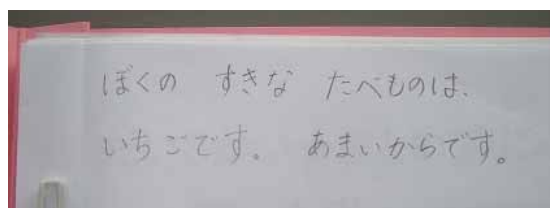 ぼくの　すきな　たべものは、
いちごです。　あまいからです。